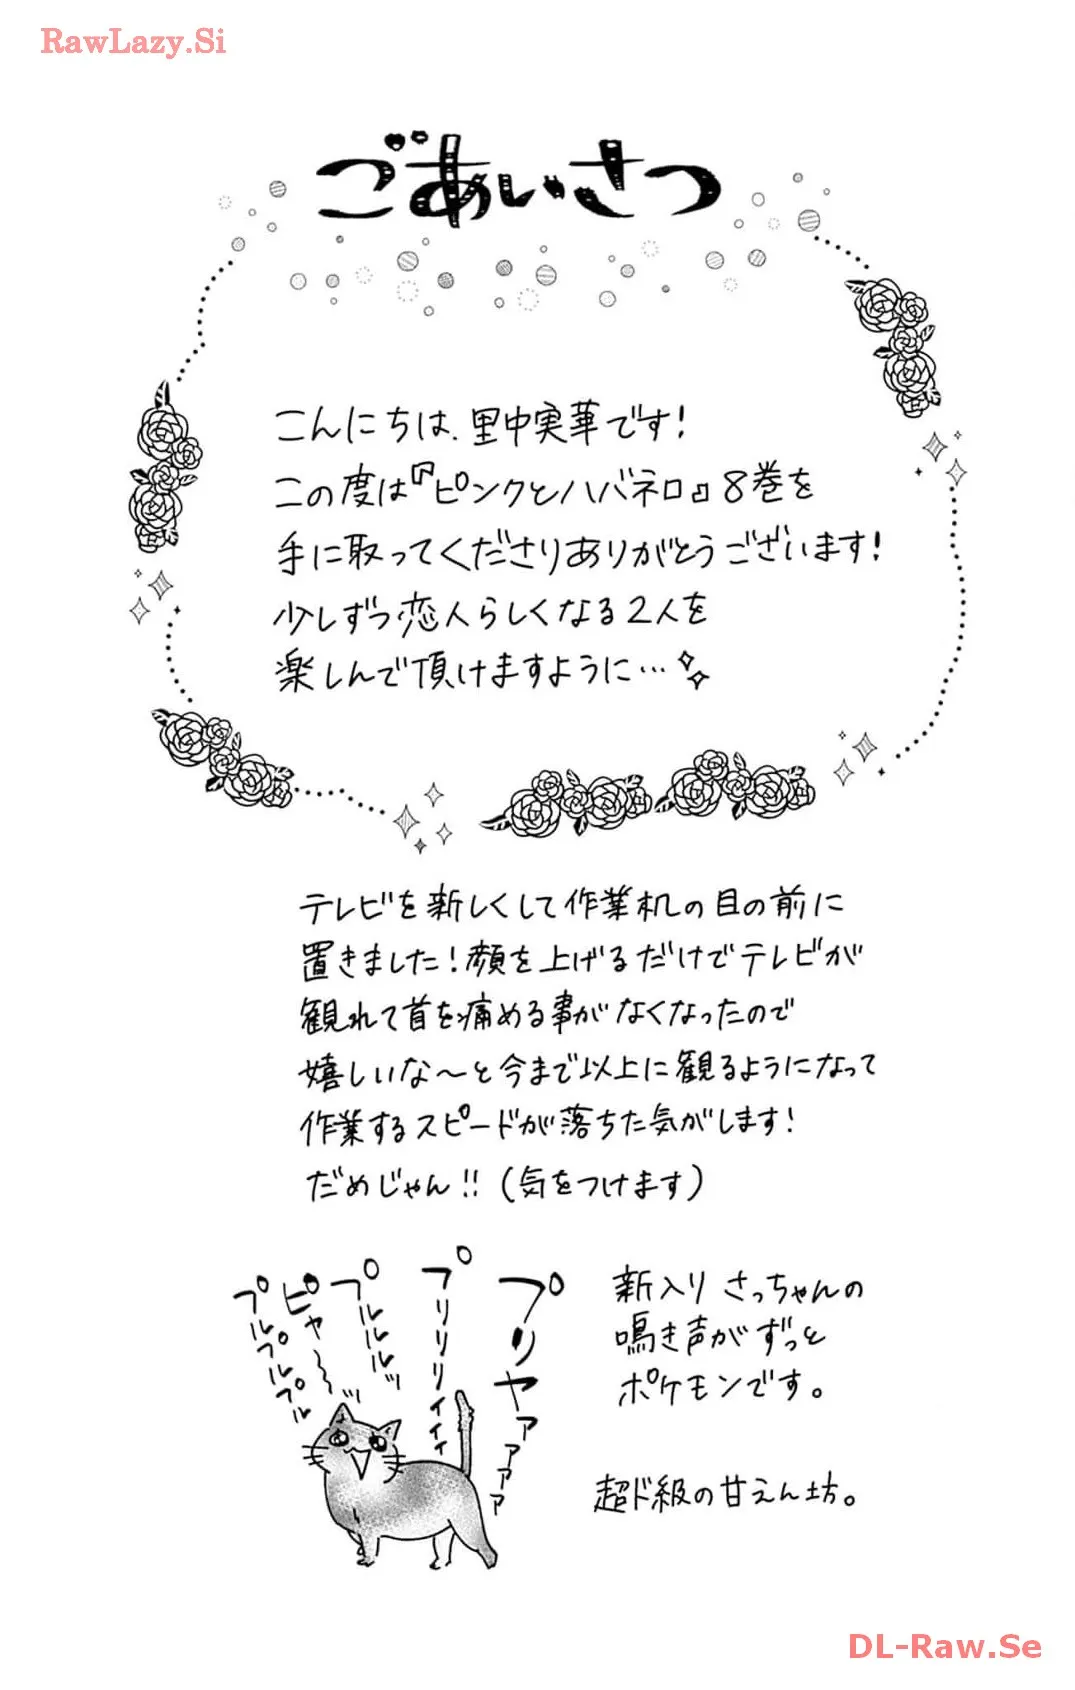 RawLazy.Si
ごあいさつ
こんにちは、里中実華です!
この度は『ピンクとハバネロ』8巻を
手に取ってくださりありがとうございます!
少しずつ恋人らしくなる2人を
楽しんで頂けますように…
テレビを新しくして作業机の目の前に
置きました!顔を上げるだけでテレビが
観れて首を痛める事がなくなったので
嬉しいな〜と今まで以上に観るようになって
作業するスピードが落ちた気がします!
だめじゃん!!(気をつけます)
新入りさっちゃんの
鳴き声がずっと
ポケモンです。
超ド級の甘えん坊。
プリヤァァァァァ
プリリリィィィィ
プルルルッ
ピャ〜〜ッ
プルプルプル
DL-Raw.Se